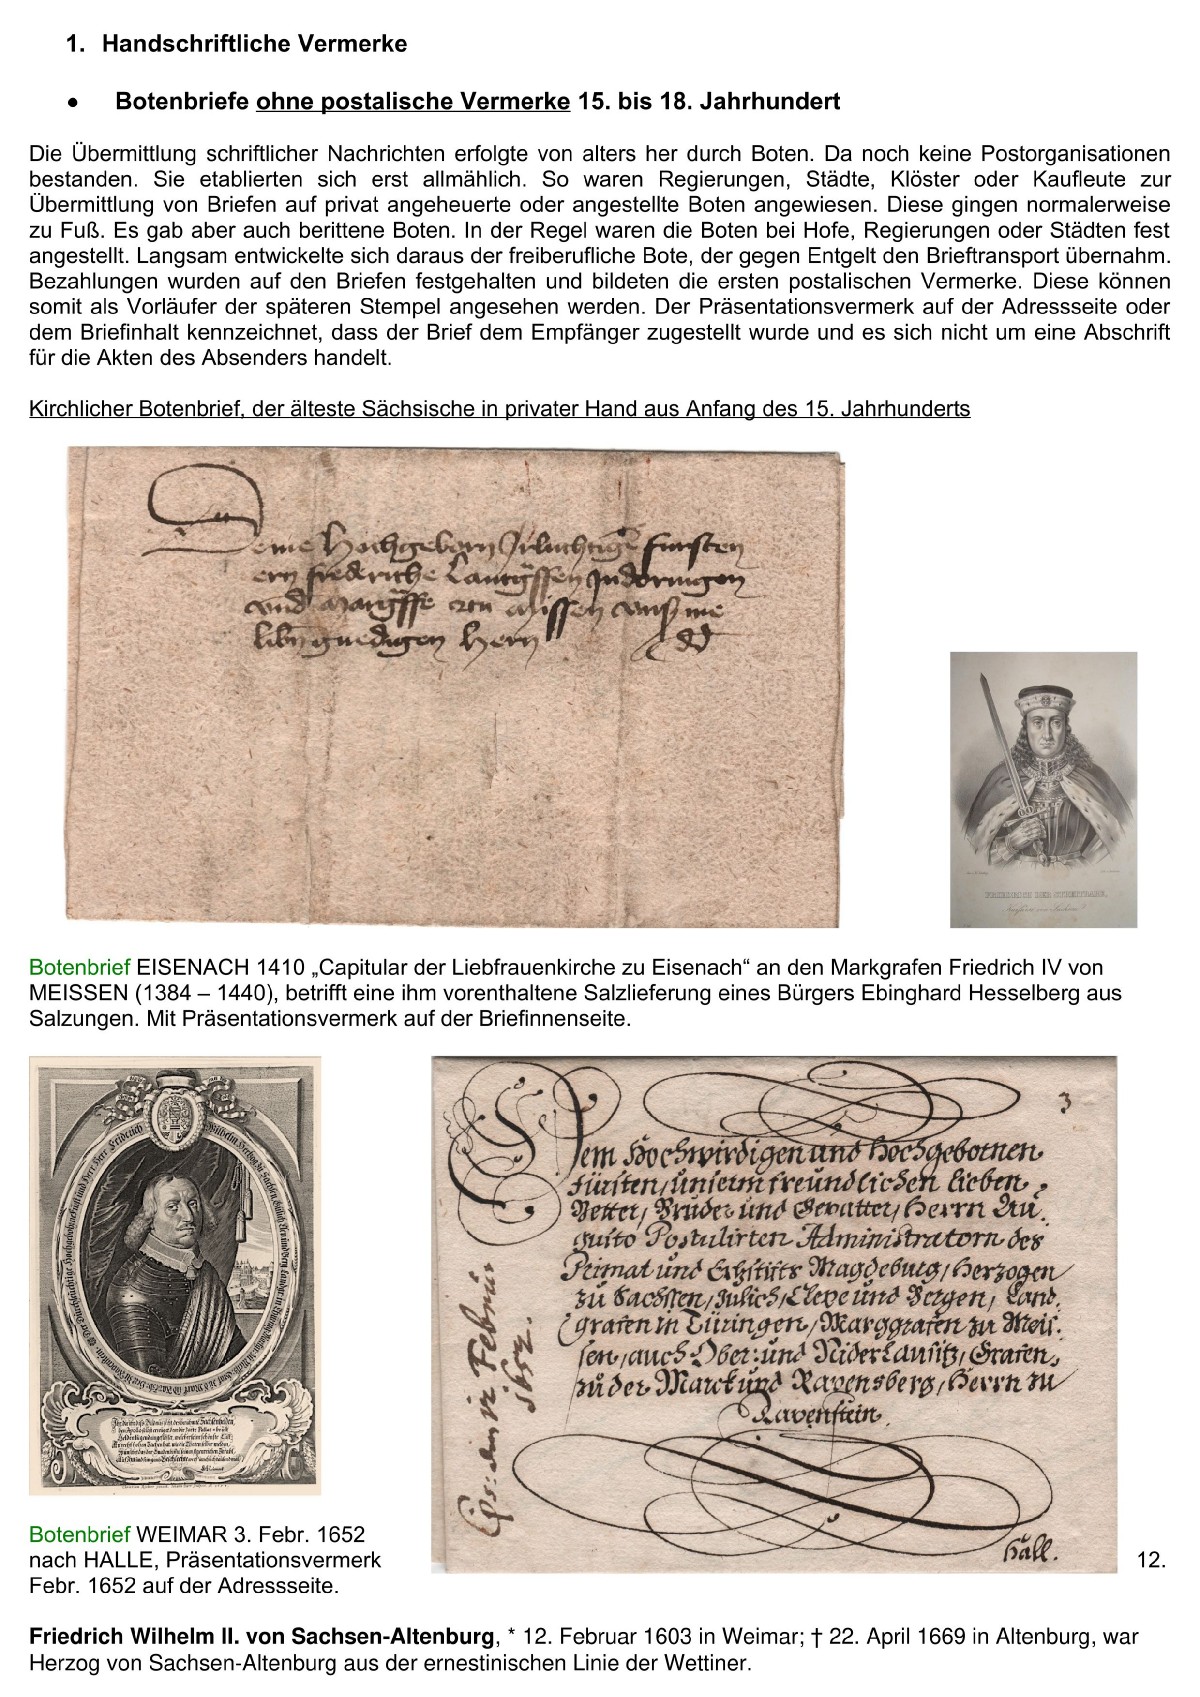 1. Handschriftliche Vermerke
• Botenbriefe ohne postalische Vermerke 15. bis 18. Jahrhundert
Die Übermittlung schriftlicher Nachrichten erfolgte von alters her durch Boten. Da noch keine Postorganisationen
bestanden. Sie etablierten sich erst allmählich. So waren Regierungen, Städte, Klöster oder Kaufleute zur
Übermittlung von Briefen auf privat angeheuerte oder angestellte Boten angewiesen. Diese gingen normalerweise
zu Fuß. Es gab aber auch berittene Boten. In der Regel waren die Boten bei Hofe, Regierungen oder Städten fest
angestellt. Langsam entwickelte sich daraus der freiberufliche Bote, der gegen Entgelt den Brieftransport übernahm.
Bezahlungen wurden auf den Briefen festgehalten und bildeten die ersten postalischen Vermerke. Diese können
somit als Vorläufer der späteren Stempel angesehen werden. Der Präsentationsvermerk auf der Adressseite oder
dem Briefinhalt kennzeichnet, dass der Brief dem Empfänger zugestellt wurde und es sich nicht um eine Abschrift
für die Akten des Absenders handelt.
Kirchlicher Botenbrief, der älteste Sächsische in privater Hand aus Anfang des 15. Jahrhunderts
Deme Hochgeborn fursten
ern frederiche Lantgffen Indoringen
vnd Margffe Missen
gnedigen Hern
FRIEDRICH DER STREITBARE,
Botenbrief EISENACH 1410 „Capitular der Liebfrauenkirche zu Eisenach“ an den Markgrafen Friedrich IV von
MEISSEN (1384 – 1440), betrifft eine ihm vorenthaltene Salzlieferung eines Bürgers Ebinghard Hesselberg aus
Salzungen. Mit Präsentationsvermerk auf der Briefinnenseite.
3
Dem Hochwirdigen und Hochgebornen
Fürsten, unserm freundlichen lieben
Vetter, Bruder und Gevatter, Herrn Au,
gusto Postulirten Administratorn des
Primat und Erzstifts Magdeburg, Herzogen
zu Sachssen, Jülich, Cleve und Bergen, Land,
grafen in Türingen, Marggrafen zu Meis:
sen, auch Ober: und Nider Lausitz, Grafen,
zu der Marck und Ravensberg, Herrn zu
Ravenstein.
Febru:
1652.
Häll.
Botenbrief WEIMAR 3. Febr. 1652
nach HALLE, Präsentationsvermerk
Febr. 1652 auf der Adressseite.
12.
Friedrich Wilhelm II. von Sachsen-Altenburg, * 12. Februar 1603 in Weimar; † 22. April 1669 in Altenburg, war
Herzog von Sachsen-Altenburg aus der ernestinischen Linie der Wettiner.